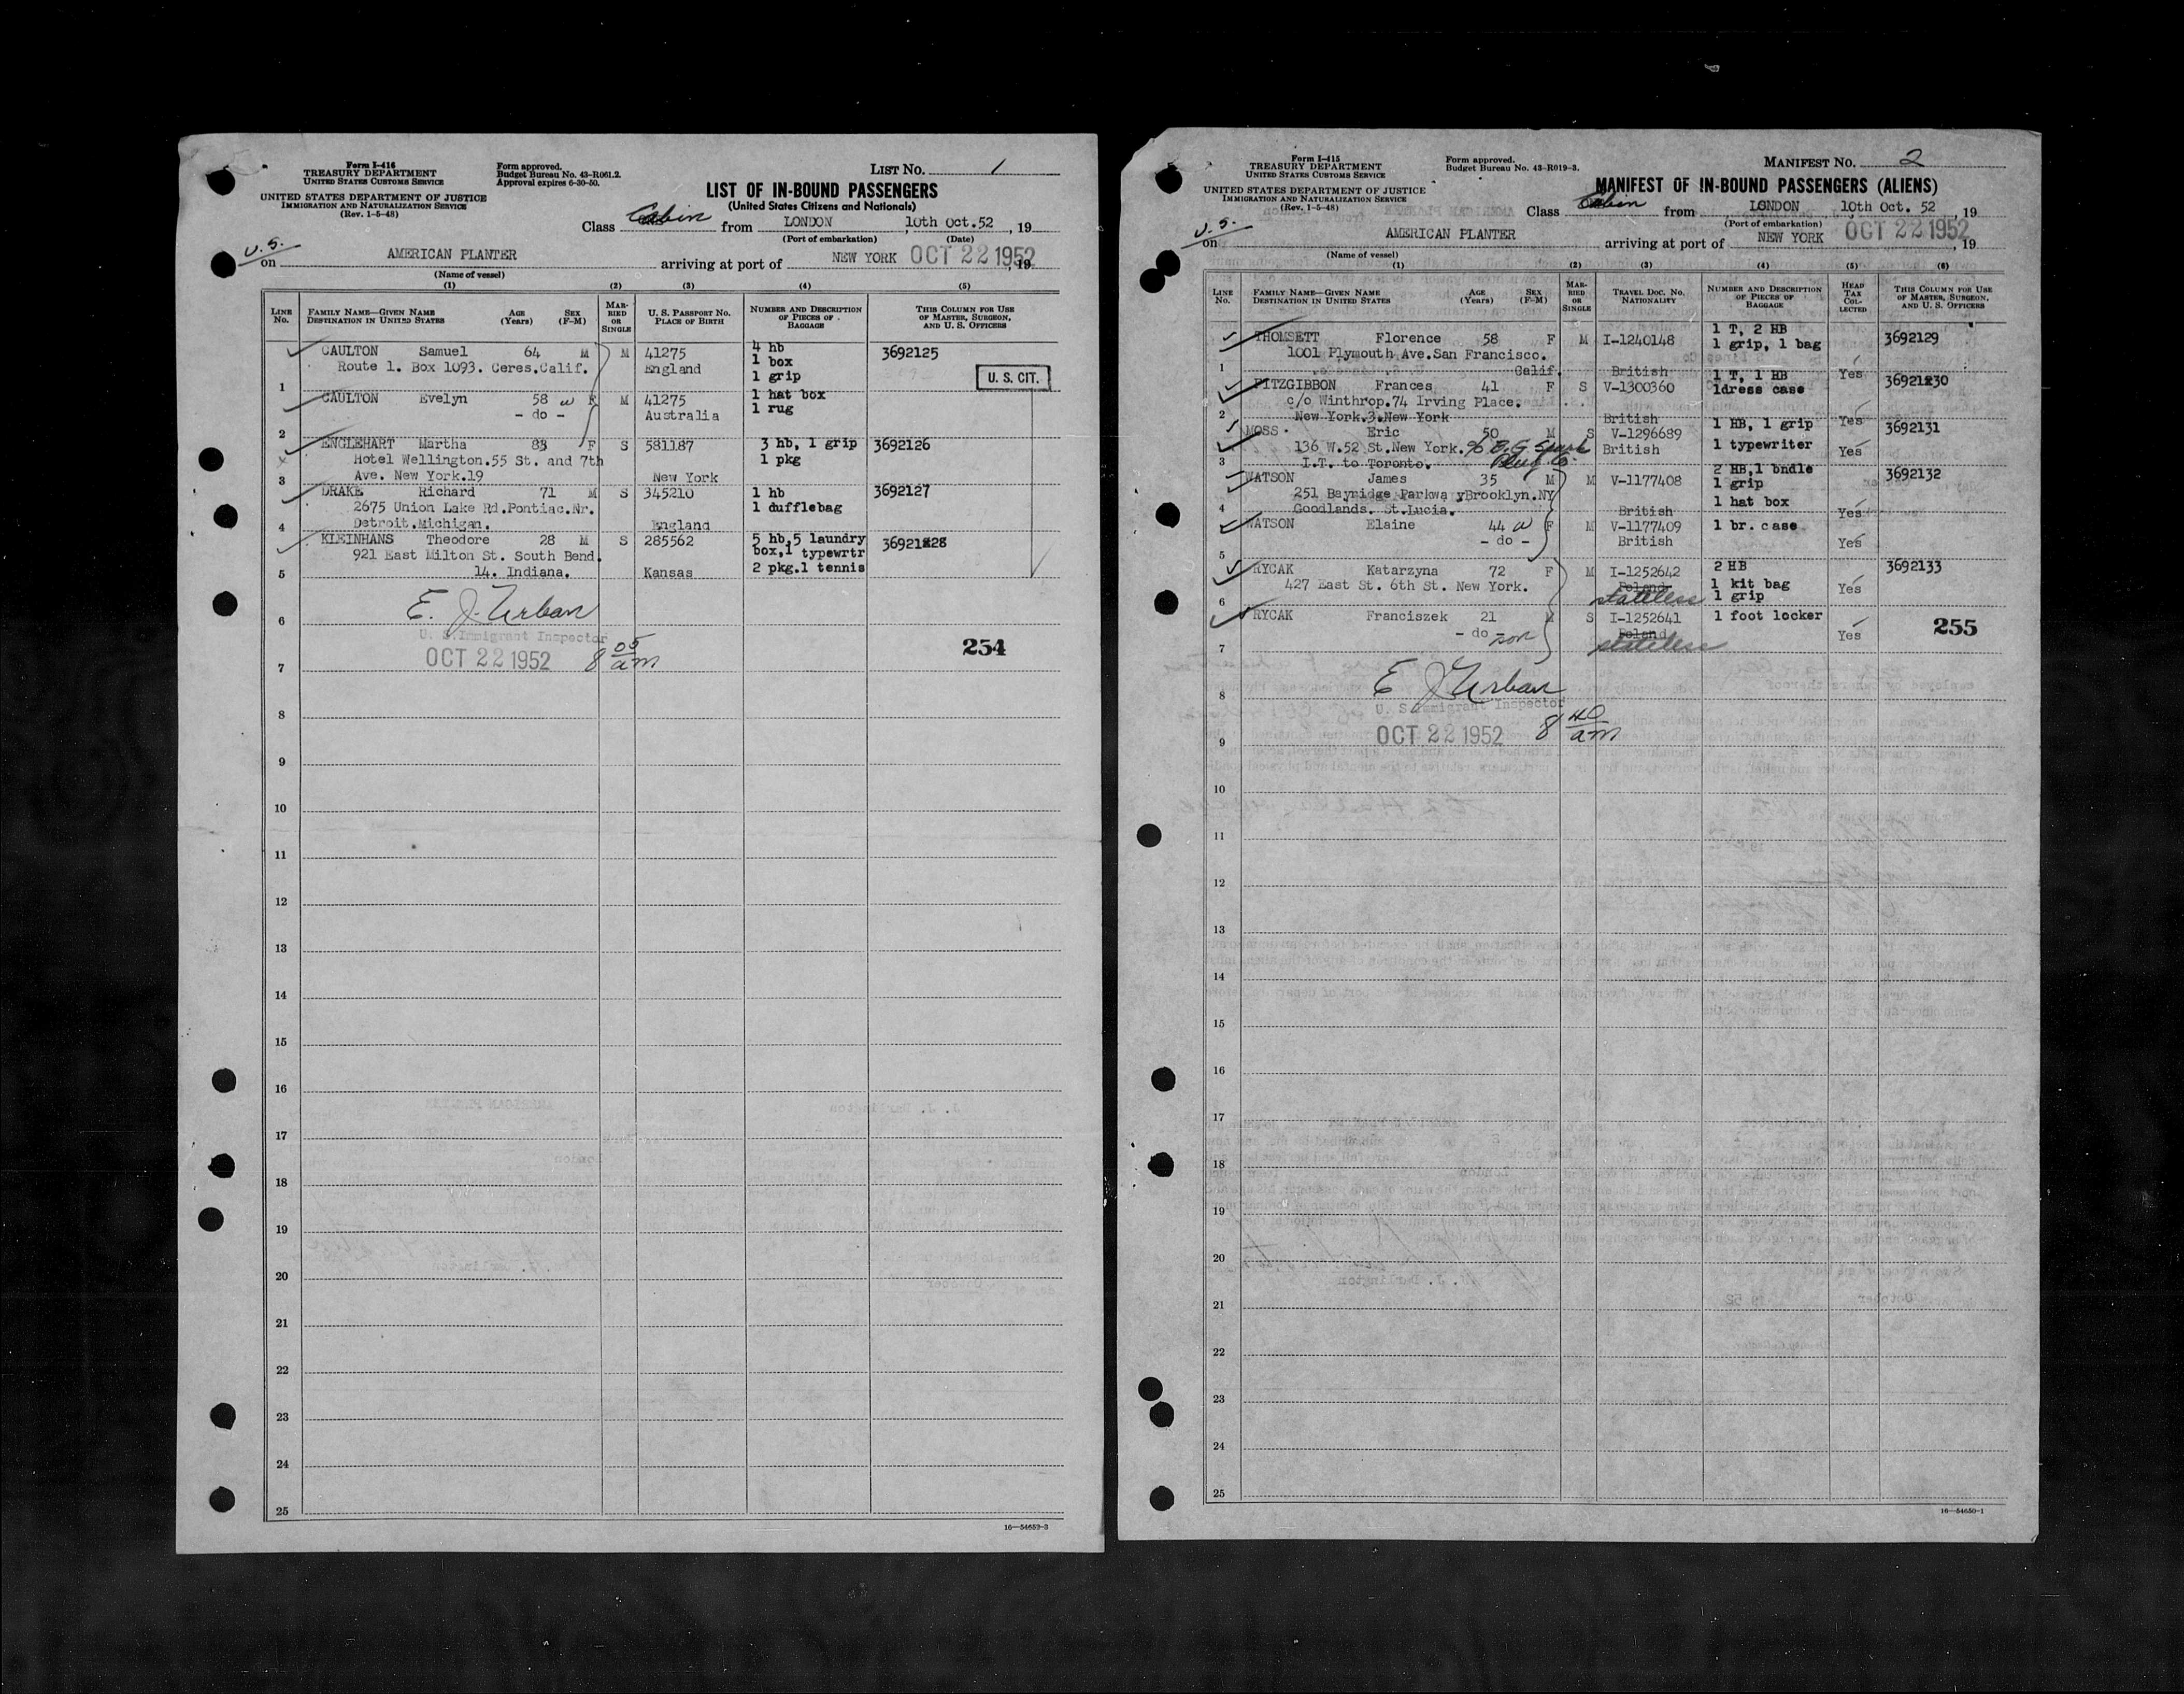 Form I-416
TREASURY DEPARTMENT
UNITED STATES CUSTOMS SERVICE
UNITED STATES DEPARTMENT OF JUSTICE
IMMIGRATION AND NATURALIZATION SERVICE
(Rev. 1-5-48)
Form approved.
Budget Bureau No. 43-R061.2.
Approval expires 6-30-50.
LIST NO. 1
LIST OF IN-BOUND PASSENGERS
(United States Citizens and Nationals)
Class Cabin from LONDON 10th Oct.52, 19
(Port of embarkation) (Date)
U.S.
on AMERICAN PLANTER arriving at port of NEW YORK OCT 22 1952, 19
(Name of vessel)
(1) (2) (3) (4) (5)
LINE No. FAMILY NAME—GIVEN NAME DESTINATION IN UNITED STATES AGE (Years) SEX (F-M) MARRIED OR SINGLE U. S. PASSPORT NO. PLACE OF BIRTH NUMBER AND DESCRIPTION OF PIECES OF BAGGAGE THIS COLUMN FOR USE OF MASTER, SURGEON, AND U. S. OFFICERS
CAULTON Samuel 64 M M 41275 4 hb 3692125
Route 1. Box 1093. Ceres.Calif. England 1 box
1 1 grip U. S. CIT.
CAULTON Evelyn 58 w F M 41275 1 hat box
- do - Australia 1 rug
2
ENGLEHART Martha 83 F S 581187 3 hb, 1 grip 3692126
Hotel Wellington.55 St. and 7th 1 pkg
3 Ave. New York.19 New York
DRAKE Richard 71 M S 345210 1 hb 3692127
2675 Union Lake Rd.Pontiac.Nr. 1 dufflebag
4 Detroit.Michigan. England
KLEINHANS Theodore 28 M S 285562 5 hb,5 laundry 3692128
921 East Milton St. South Bend. box,1 typewrtr
5 14. Indiana. Kansas 2 pkg.1 tennis
E. J. Urban
6
U. S. Immigrant Inspector
254
OCT 22 1952 8 05 am
7
8
9
10
11
12
13
14
15
16
17
18
19
20
21
22
23
24
25
16—54652-2
Form I-415
TREASURY DEPARTMENT
UNITED STATES CUSTOMS SERVICE
UNITED STATES DEPARTMENT OF JUSTICE
IMMIGRATION AND NATURALIZATION SERVICE
(Rev. 1-5-48)
Form approved.
Budget Bureau No. 43-R019-3.
MANIFEST NO. 2
MANIFEST OF IN-BOUND PASSENGERS (ALIENS)
Class Cabin from LONDON 10th Oct. 52, 19
(Port of embarkation)
U.S.
on AMERICAN PLANTER arriving at port of NEW YORK OCT 22 1952, 19
(Name of vessel)
(1) (2) (3) (4) (5) (6)
LINE No. FAMILY NAME—GIVEN NAME DESTINATION IN UNITED STATES AGE (Years) SEX (F-M) MARRIED OR SINGLE TRAVEL DOC. NO. NATIONALITY NUMBER AND DESCRIPTION OF PIECES OF BAGGAGE HEAD TAX COLLECTED THIS COLUMN FOR USE OF MASTER, SURGEON, AND U. S. OFFICERS
THOMSETT Florence 58 F M I-1240148 1 T, 2 HB 3692129
1001 Plymouth Ave.San Francisco. 1 grip, 1 bag
1 Calif. British Yes
FITZGIBBON Frances 41 F S V-1300360 1 T, 1 HB 3692130
c/o Winthrop.74 Irving Place. 1dress case
2 New York.3.New York British Yes
MOSS Eric 50 M S V-1296689 1 HB, 1 grip 3692131
136 W.52 St.New York. % B.G. Spark British 1 typewriter Yes
3 I.T. to Toronto. Plug Co.
WATSON James 35 M M V-1177408 2 HB,1 bndle 3692132
251 Bayridge Parkwa yBrooklyn.NY 1 grip
4 Goodlands. St.Lucia. British 1 hat box Yes
WATSON Elaine 44 w F M V-1177409 1 br. case
- do - British Yes
5
RYCAK Katarzyna 72 F M I-1252642 2 HB 3692133
427 East St. 6th St. New York. Poland 1 kit bag Yes
6 stateless 1 grip
RYCAK Franciszek 21 M S I-1252641 1 foot locker
- do - son Poland Yes 255
7 stateless
E J Urban
8
U. S. Immigrant Inspector
OCT 22 1952 8 40 am
9
10
11
12
13
14
15
16
17
18
19
20
21
22
23
24
25
16—54650-1